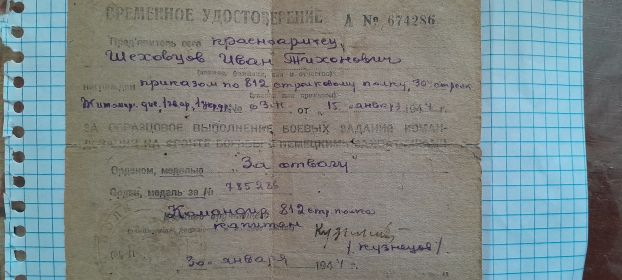 ВРЕМЕННОЕ УДОСТОВЕРЕНИЕ А № 674286
Пред'явитель сего красноармеец
Шеховцов Иван Тихонович
награжден приказом по 812 стрелковому полку, 30 стрелк.
Житомир. див. № 03-н от „15" января 1944 г.
ЗА ОБРАЗЦОВОЕ ВЫПОЛНЕНИЕ БОЕВЫХ ЗАДАНИЙ КОМАН-
ДОВАНИЯ НА ФРОНТЕ БОРЬБЫ С НЕМЕЦКИМИ ЗАХВАТЧИКАМИ
Орденом, медалью „За отвагу"
Орден, медаль за №
Командир 812 стр. полка
капитан
/Кузнецов/
„30" января 1944 г.